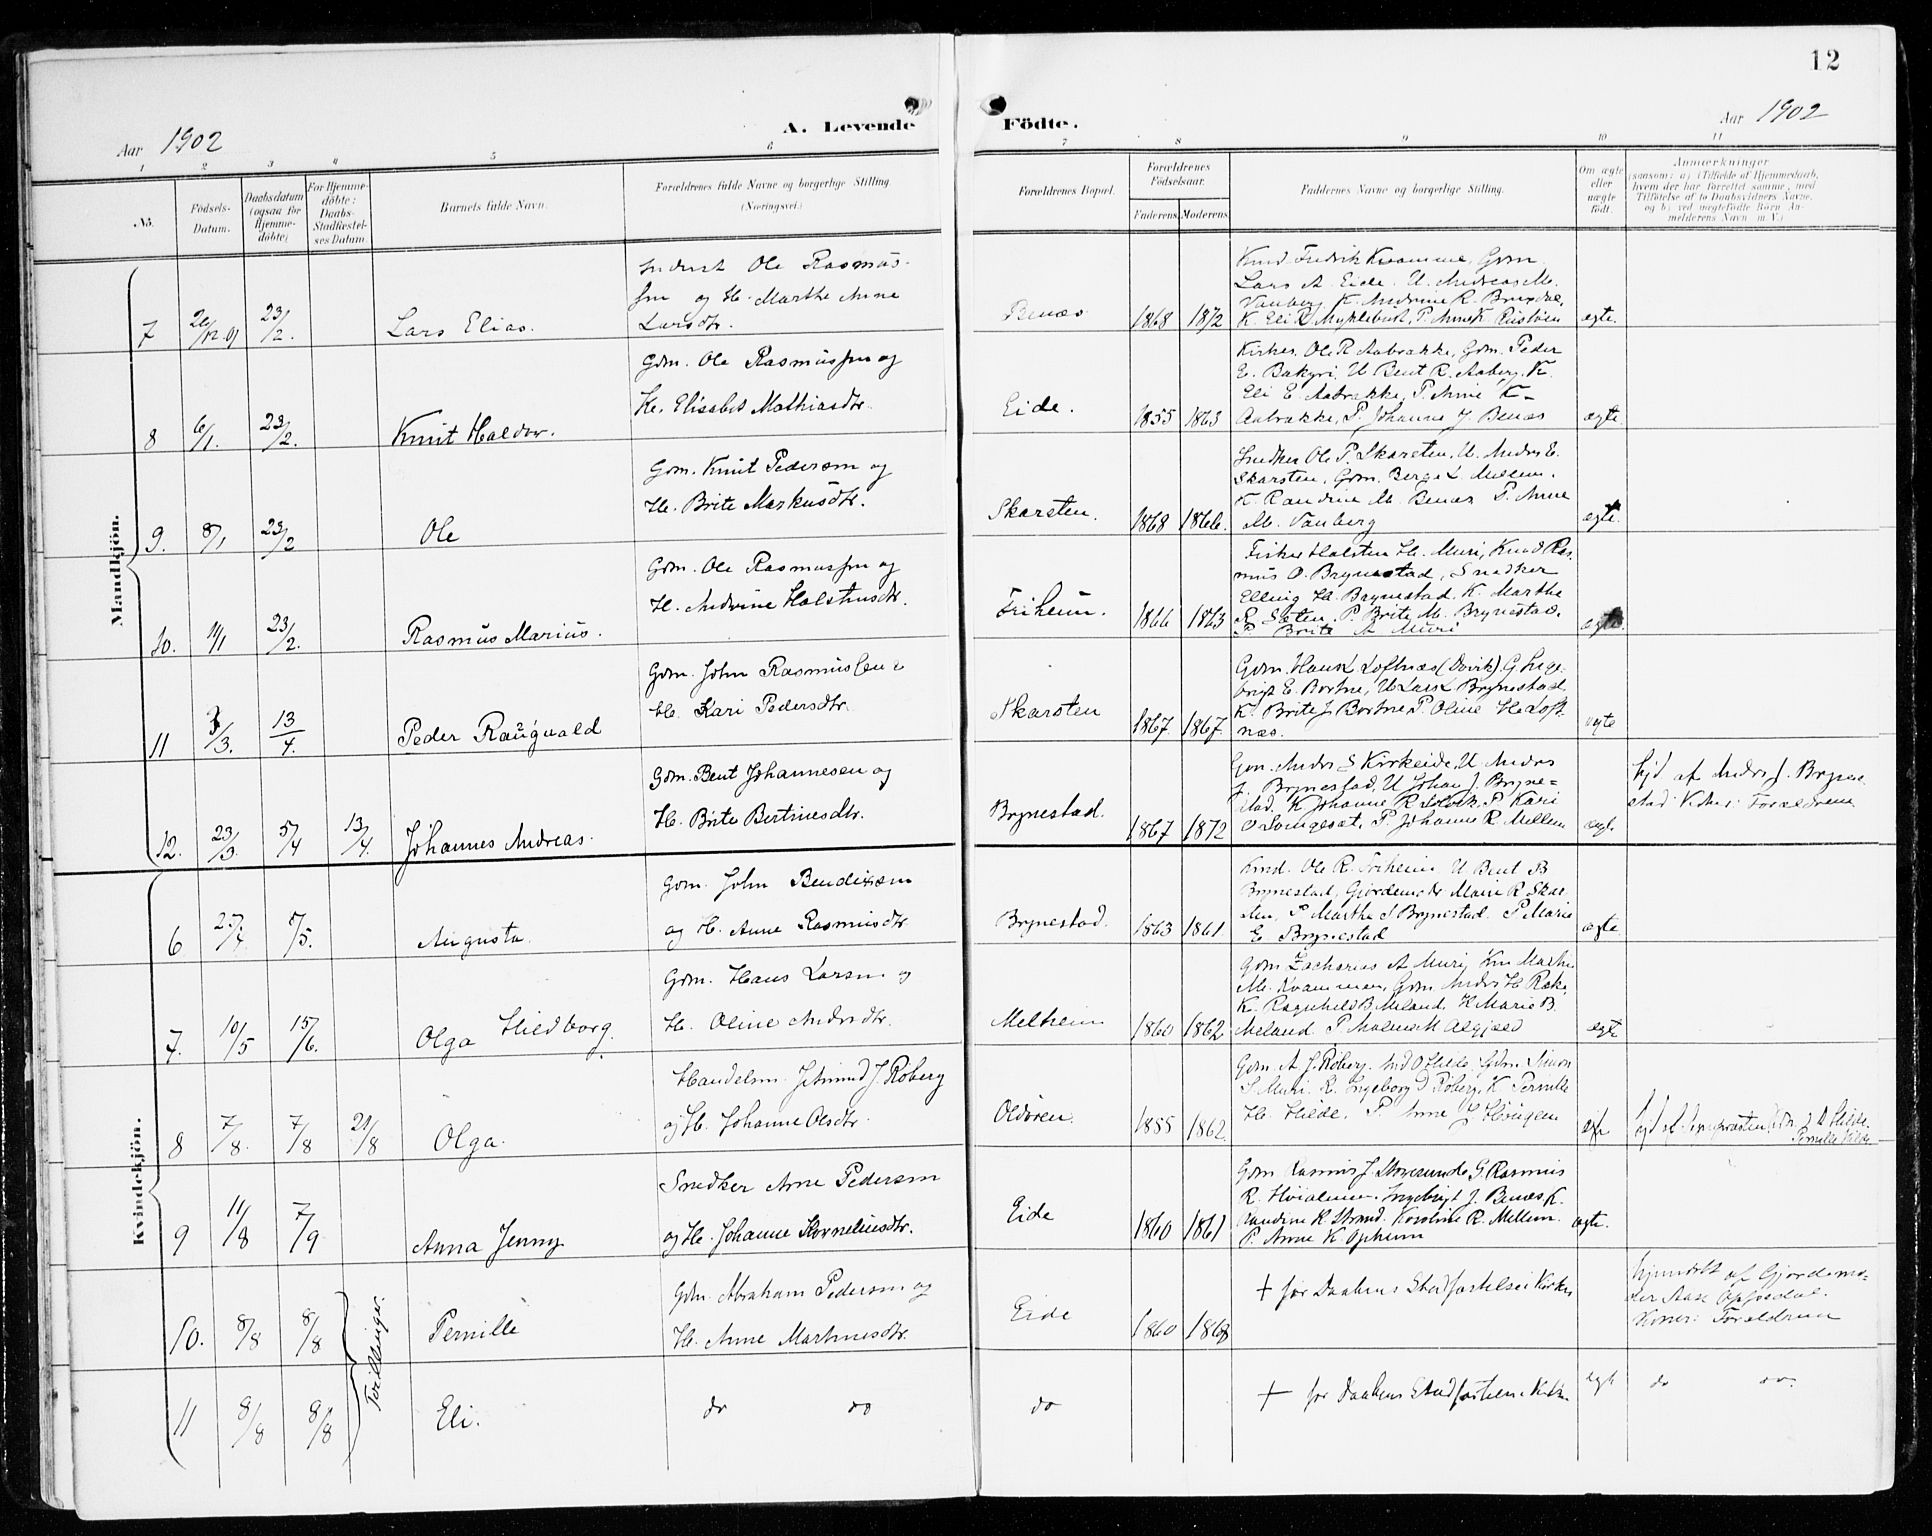 12
Aar 1902
A. Levende Födte.
Aar 1902
1 2 3 4 5 6 7 8 9 10 11
No.
Födsels-Datum.
Daabsdatum (ogsaa for Hjemme-döbte)
For Hjemme-döbte: Daabs-Stadfæstel-ses Datum
Barnets fulde Navn.
Forældrenes fulde Navne og borgerlige Stilling.
(Næringsvei.)
Forældrenes Bopæl.
Forældrenes Födselsaar.
Faderens. Moderens.
Faddernes Navne og borgerlige Stilling.
Om ægte eller uægte födt.
Anmærkninger
(saasom: a) i Tilfælde af Hjemmedaab,
hvem der har forrettet samme, med
Tilföielse af to Daabsvidners Navne,
og b) ved uægtefödte Börn An-
melderens Navn m. V.)
Mandkjön.
7 26/12.01 23/2. Lars Elias.
Inderst Ole Rasmus-
sen og H. Marthe Anne
Larsdtr.
Benæs 1868 1872
Lars A. Eide. U. Andreas M.
Vanberg K. Andrine R. Brusdal,
K. Eli R. Myklebust, P. Anne K.
ægte.
8 6/1. 23/2. Knut Haldor.
Gdm. Ole Rasmussen og
H. Elisabet Mathiasdtr.
Eide. 1855 1863
Kirkes. Ole R. Aabrække, Gdm. Peder
E. Bakyri, U Bent R. Aaberg. K.
Eli E. Aabrække, P. Anne K-
Aabrække, P. Johanne J. Benæs
ægte.
9. 8/1 23/2 Ole
Gdm. Knut Pedersen og
H. Brite Markusdtr.
Skarsten. 1868 1866.
Snedker Ole P. Skarsten, U. Anders E.
Skarsten, Gdm. Berge L. Mellem.
K. Randine M. Benæs P. Anne
M. Vanberg
ægte.
10. 11/1 23/2. Rasmus Marius.
Gdm. Ole Rasmussen og
H. Andrine Holstensdtr.
Friheim. 1866 1863
Fisker Holsten H. Muri, Knud Ras-
mus O. Brynestad, Snedker
Elling H. Brynestad K. Marthe
R. Sæten, P. Brite M. Brynestad.
P. Brite A Muri
ægte.
11 3/3. 13/4. Peder Raugnald
Gdm. John Rasmussen &
H. Kari Pedersdtr.
Skarsten 1867 1867
Gdm. Hans L Loftnæs (Davik). G. Inge-
brigt E. Bortne, U Lars L Brynestad,
K. Brite J Bortne P. Oline H. Loft-
næs.
ægte
12. 23/3. 5/4 13/4. Johannes Andreas.
Gdm. Bent Johannesen og
H. Brite Bertinesdtr.
Brynestad. 1867 1872
Gdm. Anders S Kirkeide, U Anders
J. Brynestad, U Johan J. Bryne=
stad. K Johanne R. P. Kari
P. Johanne R. Mellem
ægte
Hjd af Anders J. Bryne
stad Vidner: Forældrene
Kvindekjön.
6 25/4 7/5. Augusta.
Gdm. John Bendixsen
og H. Anne Rasmusdtr
Brynestad. 1863 1861
Ole R. Friheim U Bent B
Brynestad, Marie R. Skar-
sten, P Marthe S Brynestad. P Marie
E Brynestad
ægte
7. 10/5 15/6. Olga Hildborg.
Gdm. Hans Larsen og
H. Oline Andersdtr.
Melheim 1860 1862
Gdm Zacharias A Muri,
M. Kvammen, Gdm Anders H Rake,
K. Ragnhild B. Meland, K Marie B.
Meland P Malene M Algjeld
ægte
8 7/8. 7/8 21/8 Olga.
Handelsm. J. Amund J. Roberg
og H. Johanne Olsdtr.
Oldören. 1855 1862.
Gdm. A. J. Roberg. Gdm. Simon
S Muri. K. Ingeborg D Roberg, K. Pernille
H. Hilde. P. Anne J Haugen
Pernille Hilde
9 11/8 7/9 Anna Jenny
Snedker Arne Pedersen
og H. Johanne Korneliusdtr.
Eide 1860 1861
Gdm Rasmus J. G. Rasmus
R. Ingebrigt J. Benæs K.
Randine K. Strand. Karoline R. Mellem.
P. Anne K. Opheim
ægte.
10. 8/8 8/8 Trillinger. Pernille
Gdm. Abraham Pedersen og
H. Anne Martinusdtr.
Eide 1860 1868
+ før Daabens Stadfæstelse i Kirken
Hjemdøbt af Gjordemo-
der
Vidner: Forældrene
11 8/8 8/8 Eli.
do do
do
+ før Daabens Stadfæstelse i Kirken
ægte
do do.